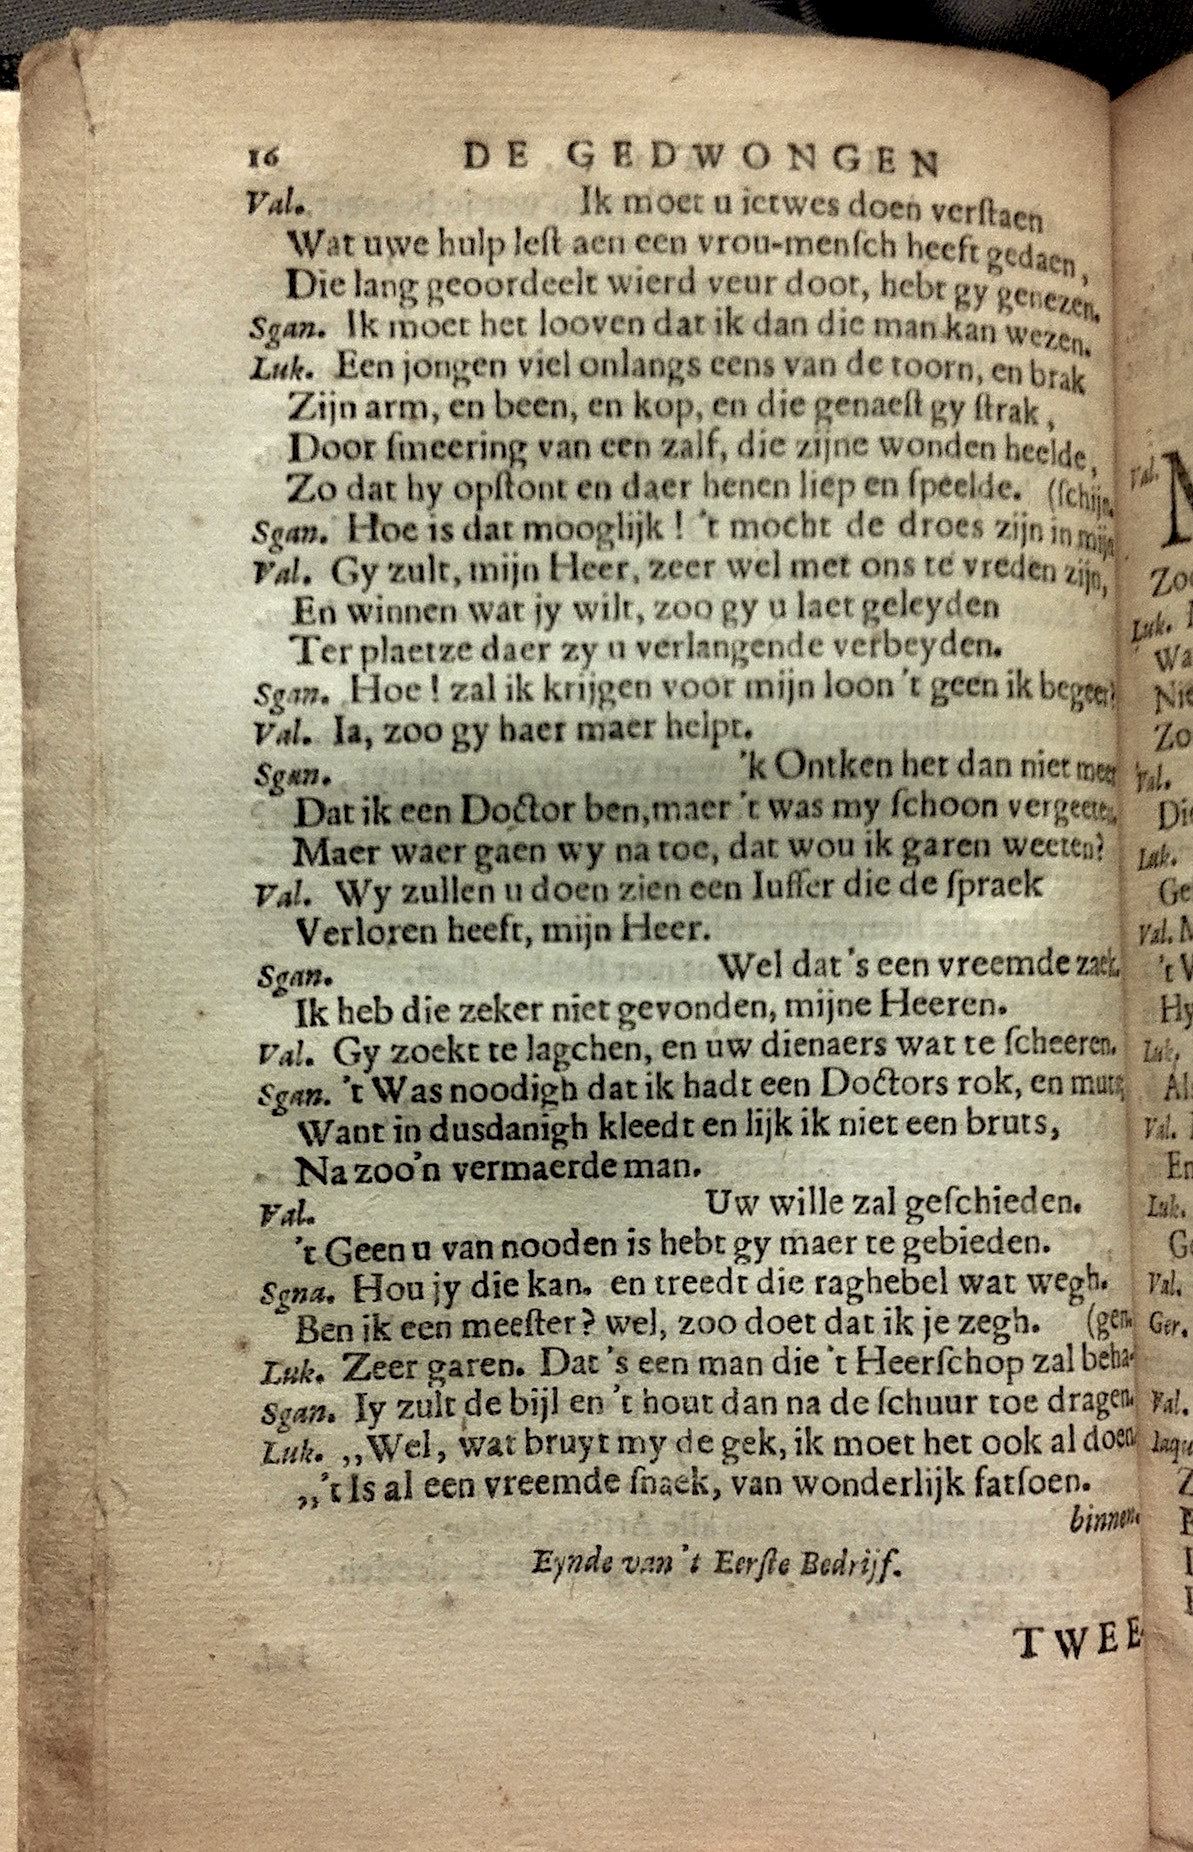 16 DE GEDWONGEN
Val. Ik moet u ietwes doen verſtaen
Wat uwe hulp leſt aen een vrou-menſch heeft gedaen,
Die lang geoordeelt wierd veur doot, hebt gy genezen.
Sgan. Ik moet het looven dat ik dan die man kan wezen.
Luk. Een jongen viel onlangs eens van de toorn, en brak
Zijn arm, en been, en kop, en die genaeſt gy ſtrak,
Door ſmeering van een zalf, die zijne wonden heelde,
Zo dat hy opſtont en daer henen liep en ſpeelde. (ſchijn.
Sgan. Hoe is dat mooglijk! 't mocht de droes zijn in mijn
Val. Gy zult, mijn Heer, zeer wel met ons te vreden zijn,
En winnen wat jy wilt, zoo gy u laet geleyden
Ter plaetze daer zy u verlangende verbeyden.
Sgan. Hoe! zal ik krijgen voor mijn loon 't geen ik begeer?
Val. Ia, zoo gy haer maer helpt.
Sgan. 'k Ontken het dan niet meer
Dat ik een Doctor ben, maer 't was my ſchoon vergeeten.
Maer waer gaen wy na toe, dat wou ik garen weeten?
Val. Wy zullen u doen zien een Iuffer die de ſpraek
Verloren heeft, mijn Heer.
Sgan. Wel dat 's een vreemde zaek.
Ik heb die zeker niet gevonden, mijne Heeren.
Val. Gy zoekt te lagchen, en uw dienaers wat te ſcheeren.
Sgan. 't Was noodigh dat ik hadt een Doctors rok, en muts
Want in dusdanigh kleedt en lijk ik niet een bruts,
Na zoo'n vermaerde man.
Val. Uw wille zal geſchieden.
't Geen u van nooden is hebt gy maer te gebieden.
Sgna. Hou jy die kan. en treedt die raghebel wat wegh.
Ben ik een meeſter? wel, zoo doet dat ik je zegh. (gen.
Luk. Zeer garen. Dat 's een man die 't Heerſchop zal beha-
Sgan. Iy zult de bijl en 't hout dan na de ſchuur toe dragen.
Luk. ,,Wel, wat bruyt my de gek, ik moet het ook al doen.
,,'t Is al een vreemde ſnaek, van wonderlijk fatſoen.
binnen.
Eynde van 't Eerſte Bedrijf.
TWEE-
Val.
Zo
Luk.
Wa
Nie
Zo
Val.
Die
Luk.
Ge
Val.
't V
Hy
Luk.
Al
Val.
En
Luk.
Ge
Val.
Ger.
Val.
Iaqu